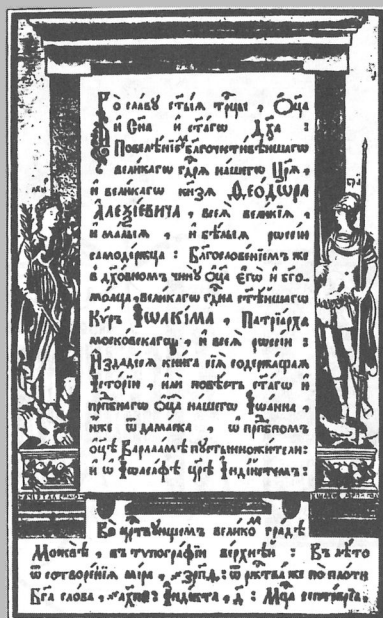 Во славу ст҃ыѧ трⷪ҇цы , Ѻ҆ц҃а
и҆ Сн҃а и҆ ст҃агѡ Дх҃а :
Повелѣнїемъ бл҃гочестивѣишагѡ
великагѡ гдⷭ҇рѧ нашегѡ Цр҃ѧ ,
и҆ великагѡ кн҃зѧ Ѳеодѡра
Алеѯїевича , всеѧ великїѧ ,
и҆ малыѧ , и҆ бѣлыѧ рѡссїи
самодержца : Бл҃гословенїемъ же
в дх҃овномъ чинꙋ ѻ҆ц҃а є҆гѡ̀ и҆ бг҃о-
молца , великагѡ гдⷭ҇на ст҃ѣишагѡ
Кѵ́ръ І҆ѡакіма , Патрїарха
московскагѡ , и҆ всеѧ рѡссїи :
И҆здадесѧ книга сїѧ содержащаѧ
І҆сторїи , и҆ли повѣсть ст҃агѡ и҆
прпⷣбнагѡ ѻ҆ц҃а нашегѡ І҆ѡанна ,
и҆же ѿ дамаска , ѡ҆ прпⷣбномъ
ѻ҆ц҃ѣ Варлаамѣ пꙋстынножители :
и҆ ѡ҆ І҆ѡасафѣ цр҃ѣ І҆ндїистѣмъ :
Въ црⷭ҇твꙋющемъ великомъ градѣ
Москвѣ , въ тѵпографїи верхнеи : Въ лѣто
ѿ сотворенїѧ мїра , ҂зр҃пд : ѿ ржⷭ҇тва же по плоти
Бг҃а слова , ҂ахп : І҆ндїкта , д҃ : Мцⷭ҇а септеврїа